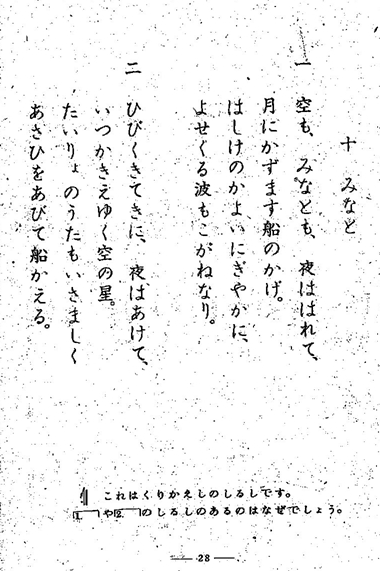 十 みなと
一 空も、みなとも、夜ははれて、
月にかずます船のかげ。
はしけのかよいにぎやかに、
よせくる波もこがねなり。
二 ひびくきてきに、夜はあけて、
いつかきえゆく空の星。
たいりょのうたもいさましく
あさひをあびて船かえる。
これはくりかえしのしるしです。
1. や 2. のしるしのあるのはなぜでしょう。
— 28 —